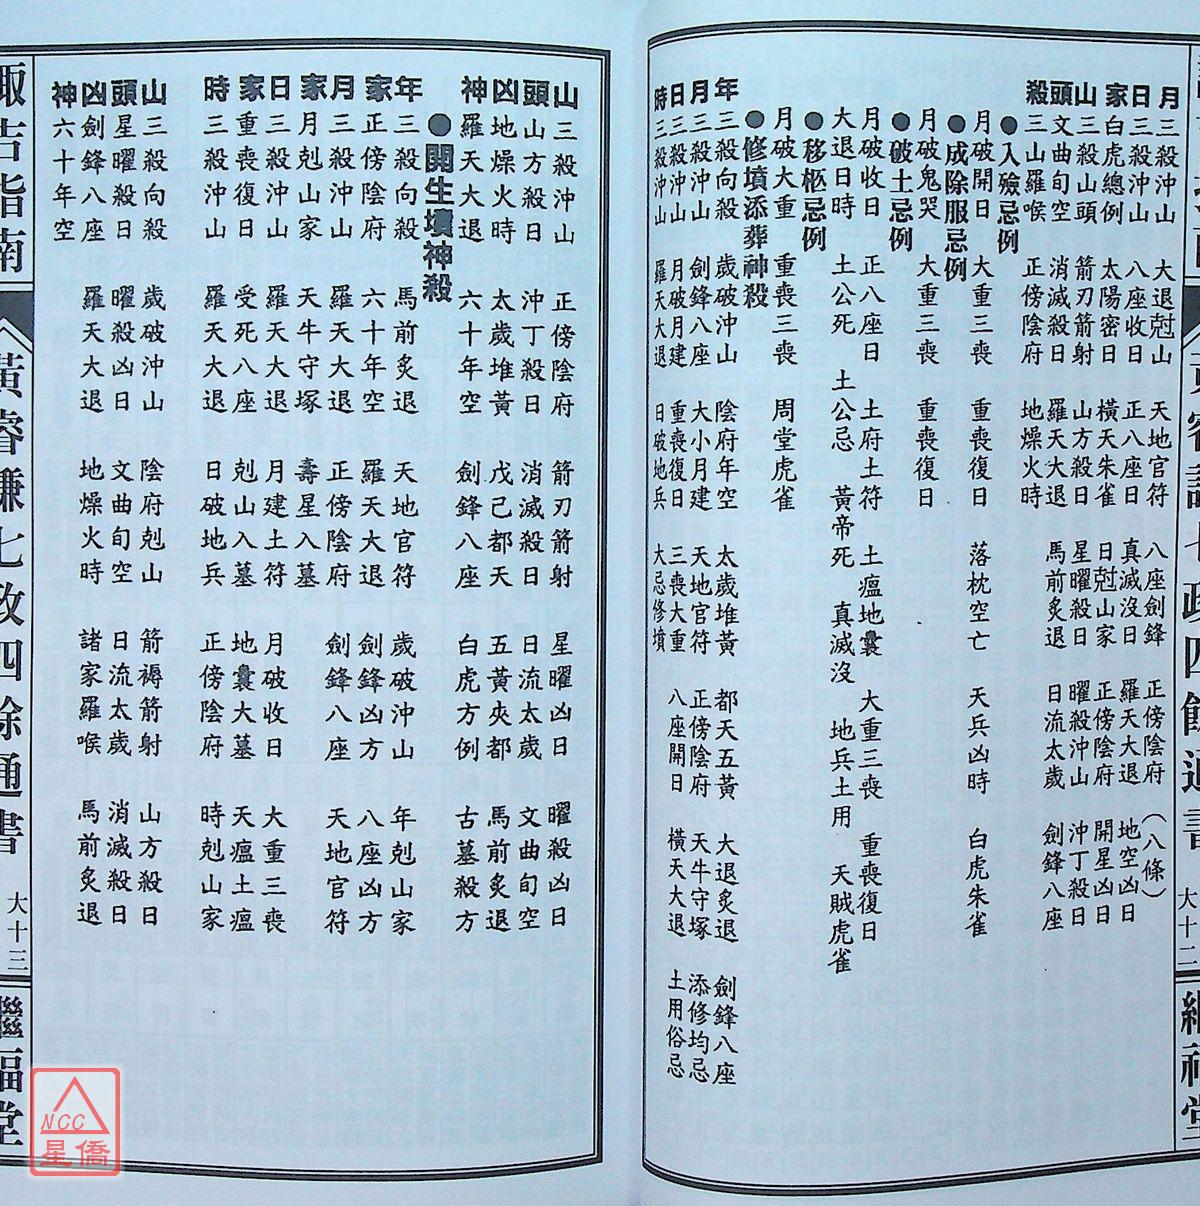 月三殺沖山 大退尅山 天地官符 八座劍鋒 正傍陰府(八條)
日三殺沖山 八座收日 正八座日 真滅沒日 羅天大退 地空凶日
家白虎總例 太陽密日 橫天朱雀 日尅山家 正傍陰府 開星凶日
山三殺山頭 箭刃箭射 山方殺日 星曜殺日 曜殺沖山 沖丁殺日
頭文曲旬空 消滅殺日 羅天大退 馬前炙退 日流太歲 劍鋒八座
殺三山羅喉 正傍陰府 地燥火時
●入殮忌例
月破開日 大重三喪 重喪復日 落枕空亡 天兵凶時 白虎朱雀
●成除服忌例
月破鬼哭 大重三喪 重喪復日
●破土忌例
月破收日 正八座日 土府土符 土瘟地囊 大重三喪 重喪復日
大退日時 土公死 土公忌 黃帝死 真滅沒 地兵土用 天賊虎雀
●移柩忌例
月破大重 重喪三喪 周堂虎雀
●修墳添葬神殺
年三殺向殺 歲破沖山 陰府年空 太歲堆黃 都天五黃 大退炙退 劍鋒八座
月三殺沖山 劍鋒八座 大小月建 天地官符 正傍陰府 天牛守塚 添修均忌
日三殺沖山 月破月建 重喪復日 三喪大重 八座開日 橫天大退 土用俗忌
時三殺沖山 羅天大退 日破地兵 大忌修墳
大十二
山三殺沖山 正傍陰府 箭刃箭射 星曜凶日 曜殺凶日
頭山方殺日 沖丁殺日 消滅殺日 日流太歲 文曲旬空
凶地燥火時 太歲堆黃 戊己都天 五黃夾都 馬前炙退
神羅天大退 六十年空 劍鋒八座 白虎方例 古墓殺方
●開生墳神殺
年三殺向殺 馬前炙退 天地官符 歲破沖山 年剋山家
家正傍陰府 六十年空 羅天大退 劍鋒凶方 八座凶方
月三殺沖山 羅天大退 正傍陰府 劍鋒八座 天地官符
家月剋山家 天牛守塚 壽星入墓
日三殺沖山 羅天大退 月建土符 月破收日 大重三喪
家重喪復日 受死八座 剋山入墓 地囊大墓 天瘟土瘟
時三殺沖山 羅天大退 日破地兵 正傍陰府 時剋山家
山三殺向殺 歲破沖山 陰府剋山 箭褥箭射 山方殺日
頭星曜殺日 曜殺凶日 文曲旬空 日流太歲 消滅殺日
凶劍鋒八座 羅天大退 地燥火時 諸家羅喉 馬前炙退
神六十年空
諏吉指南
黃睿謙七政四餘通書
大十三
繼福堂
NCC
星僑